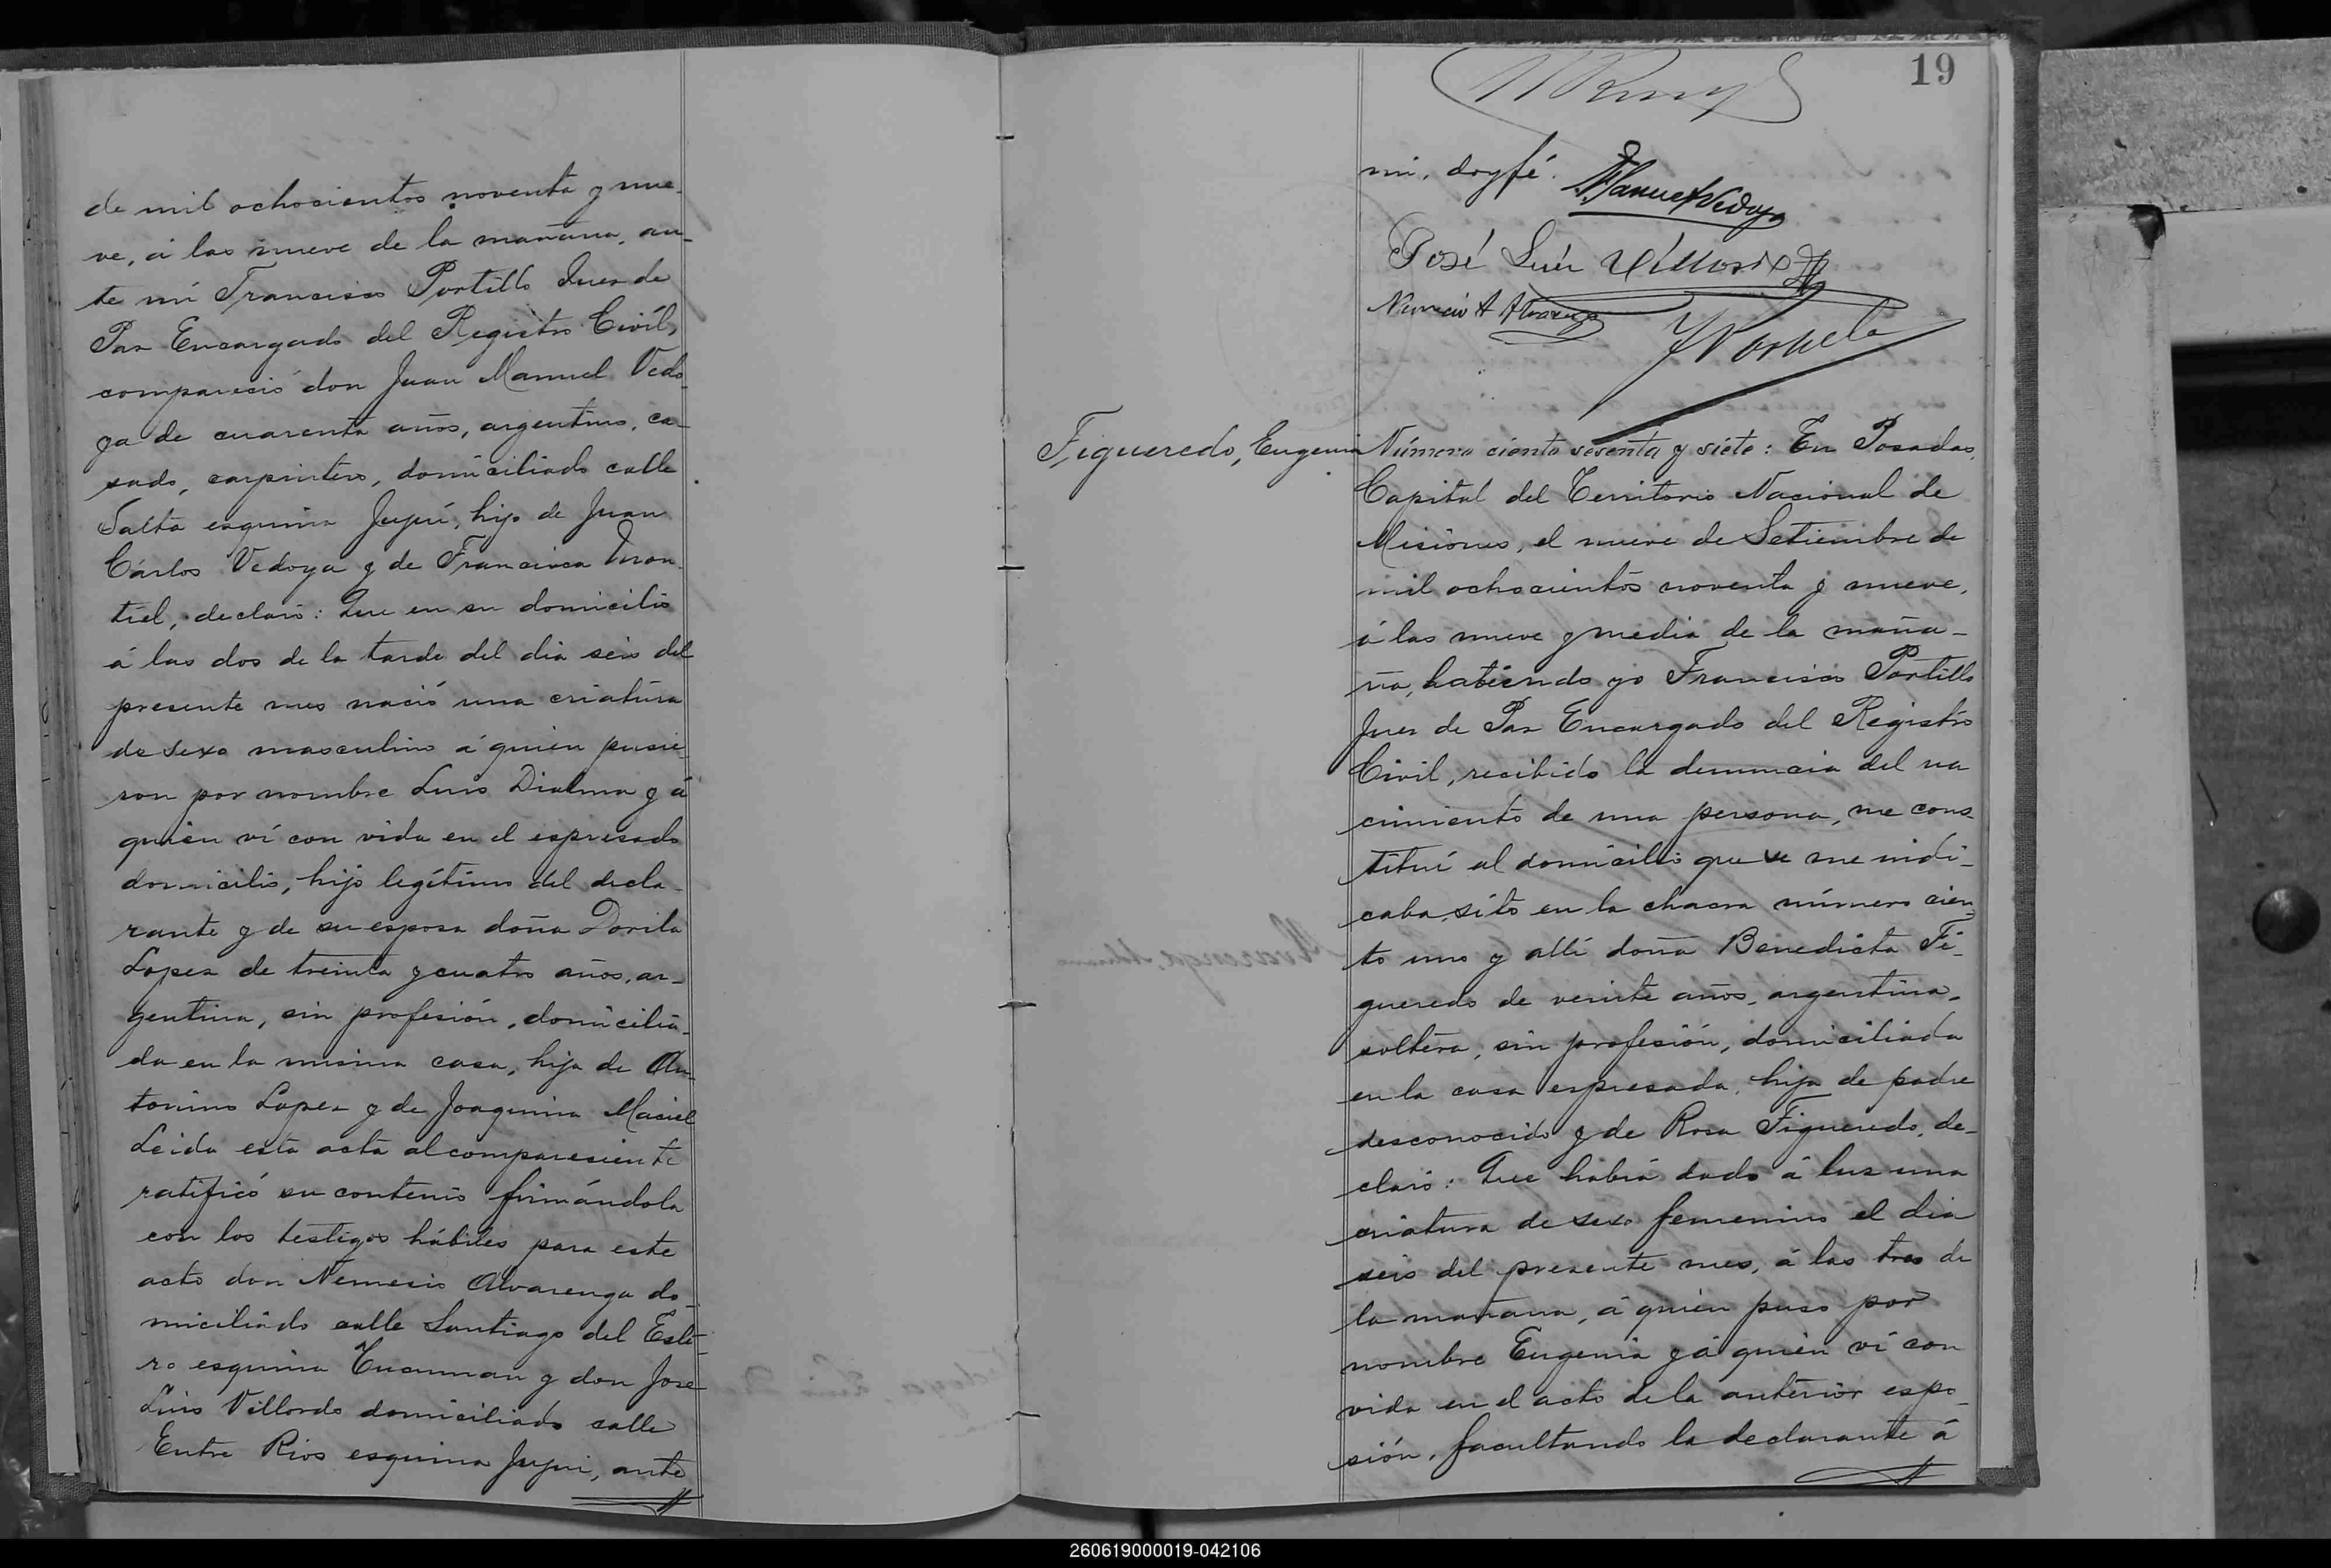 de mil ochocientos noventa y nue-
ve, á las nueve de la mañana, an-
te mi Francisco Portillo Juez de
Paz Encargado del Registro Civil,
compareció don Juan Manuel Vedo-
ya de cuarenta años, argentino, ca-
sado, carpintero, domiciliado calle
Salta esquina Jujuí, hijo de Juan
Cárlos Vedoya y de Francisca
tiel, declaró: Que en su domicilio
á las dos de la tarde del dia seis del
presente mes nació una criatura
de sexo masculino á quien pusie-
ron por nombre Luis Dialma y á
quien ví con vida en el espresado
domicilio, hijo legítimo del decla-
rante y de su esposa doña Dorila
Lopez de treinta y cuatro años, ar-
gentina, sin profesión, domicilia-
da en la misma casa, hija de An-
tonino Lopez y de Joaquina Maciel
Leida esta acta al comparesiente
ratificó su contenio firmándola
con los testigos hábiles para este
acto don Nemesio Alvarenga do-
miciliado calle Santiago del Este-
ro esquina Tucuman y don José
Luis Villordo domiciliado calle
Entre Rios esquina Jujui, ante
19
mi, doy fé.
J. Manuel Vedoya
José Luis Villordo
Nemecio A Alvarenga
Figueredo, Eugenia
Número ciento sesenta y siete: En Posadas,
Capital del Territorio Nacional de
Misiones, el nueve de Setiembre de
mil ochocientos noventa y nueve,
á las nueve y media de la maña-
na, habiendo yo Francisco Portillo
Juez de Paz Encargado del Registro
Civil, recibido la denuncia del na
cimiento de una persona, me cons-
tituí al domicilio que se me indi-
caba, sito en la chacra número cien-
to uno y allí doña Benedicta Fi-
gueredo de veinte años, argentina,
soltera, sin profesión, domiciliada
en la casa espresada, hija de padre
desconocido y de Rosa Figueredo, de-
claró: Que habia dado á luz una
criatura de sexo femenino el dia
seis del presente mes, á las tres de
la mañana, á quien puso por
nombre Eugenia y á quien ví con
vida en el acto de la anterior espo-
sión, facultando la declarante á
260619000019-042106